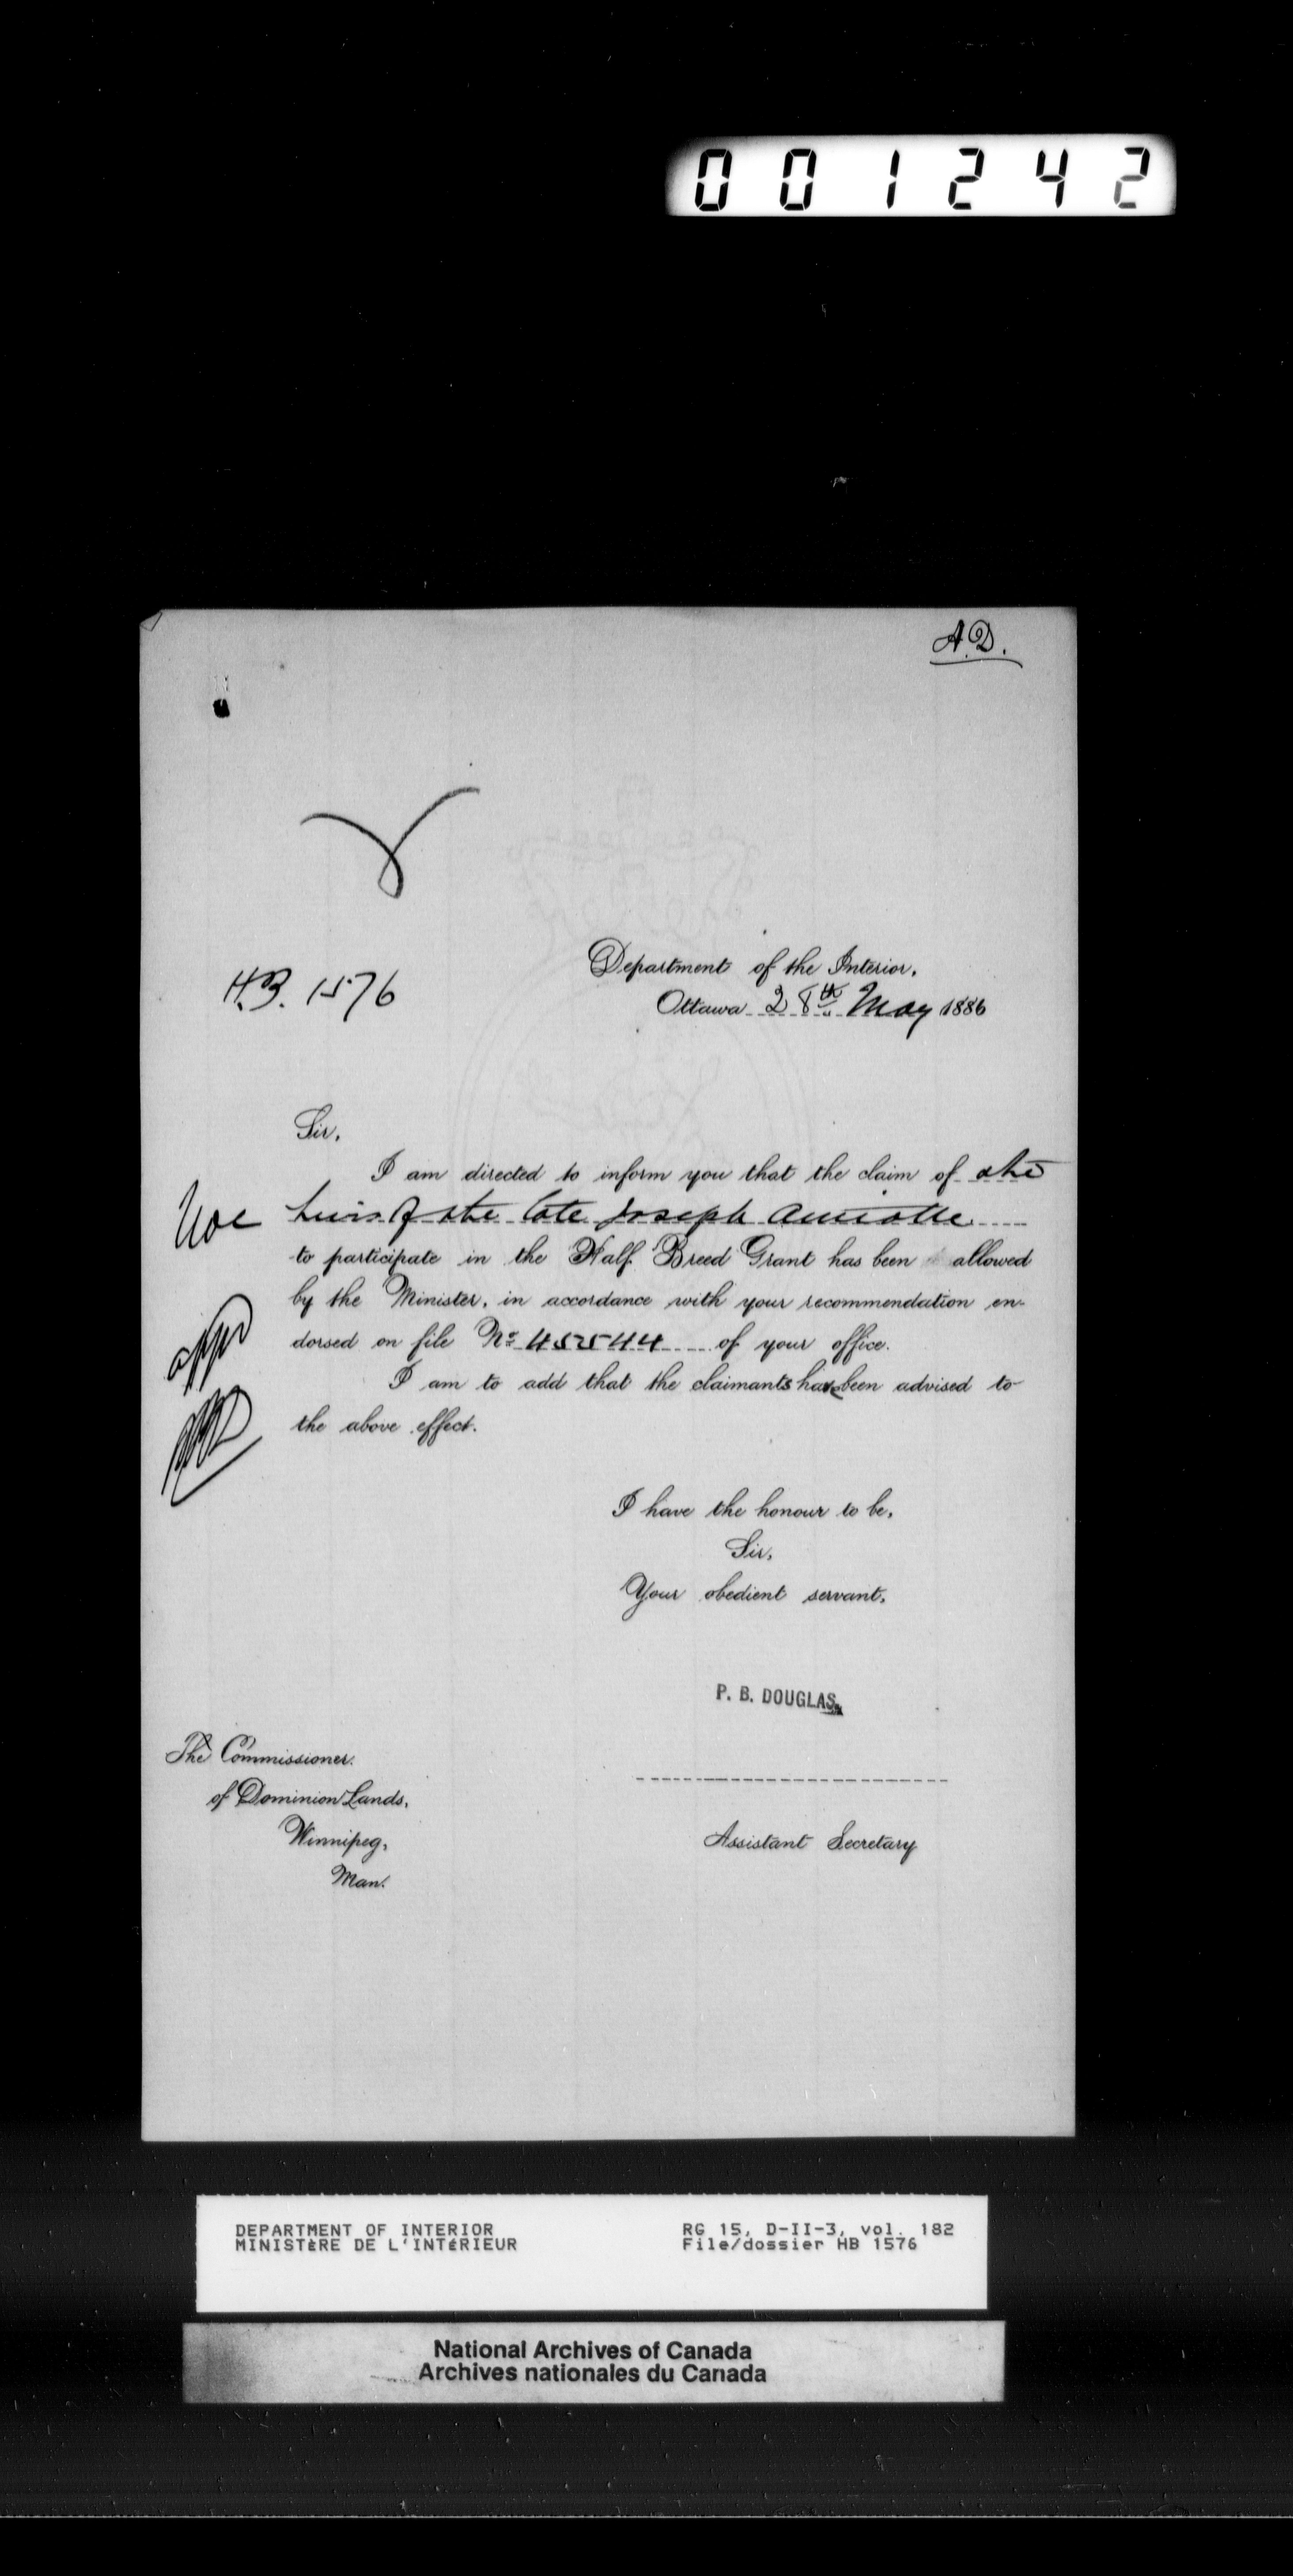 001242
A.D.
H.B. 1576
Department of the Interior,
Ottawa 28th May 1886
Sir,
I am directed to inform you that the claim of the
heirs of the late Joseph
to participate in the Half Breed Grant has been allowed
by the Minister, in accordance with your recommendation en-
dorsed on file No 45544 of your office.
I am to add that the claimants have been advised to
the above effect.
I have the honour to be,
Sir,
Your obedient servant,
P. B. DOUGLAS,
Assistant Secretary
The Commissioner
of Dominion Lands,
Winnipeg,
Man.
DEPARTMENT OF INTERIOR
MINISTÈRE DE L'INTÉRIEUR
RG 15, D-II-3, vol. 182
File/dossier HB 1576
National Archives of Canada
Archives nationales du Canada